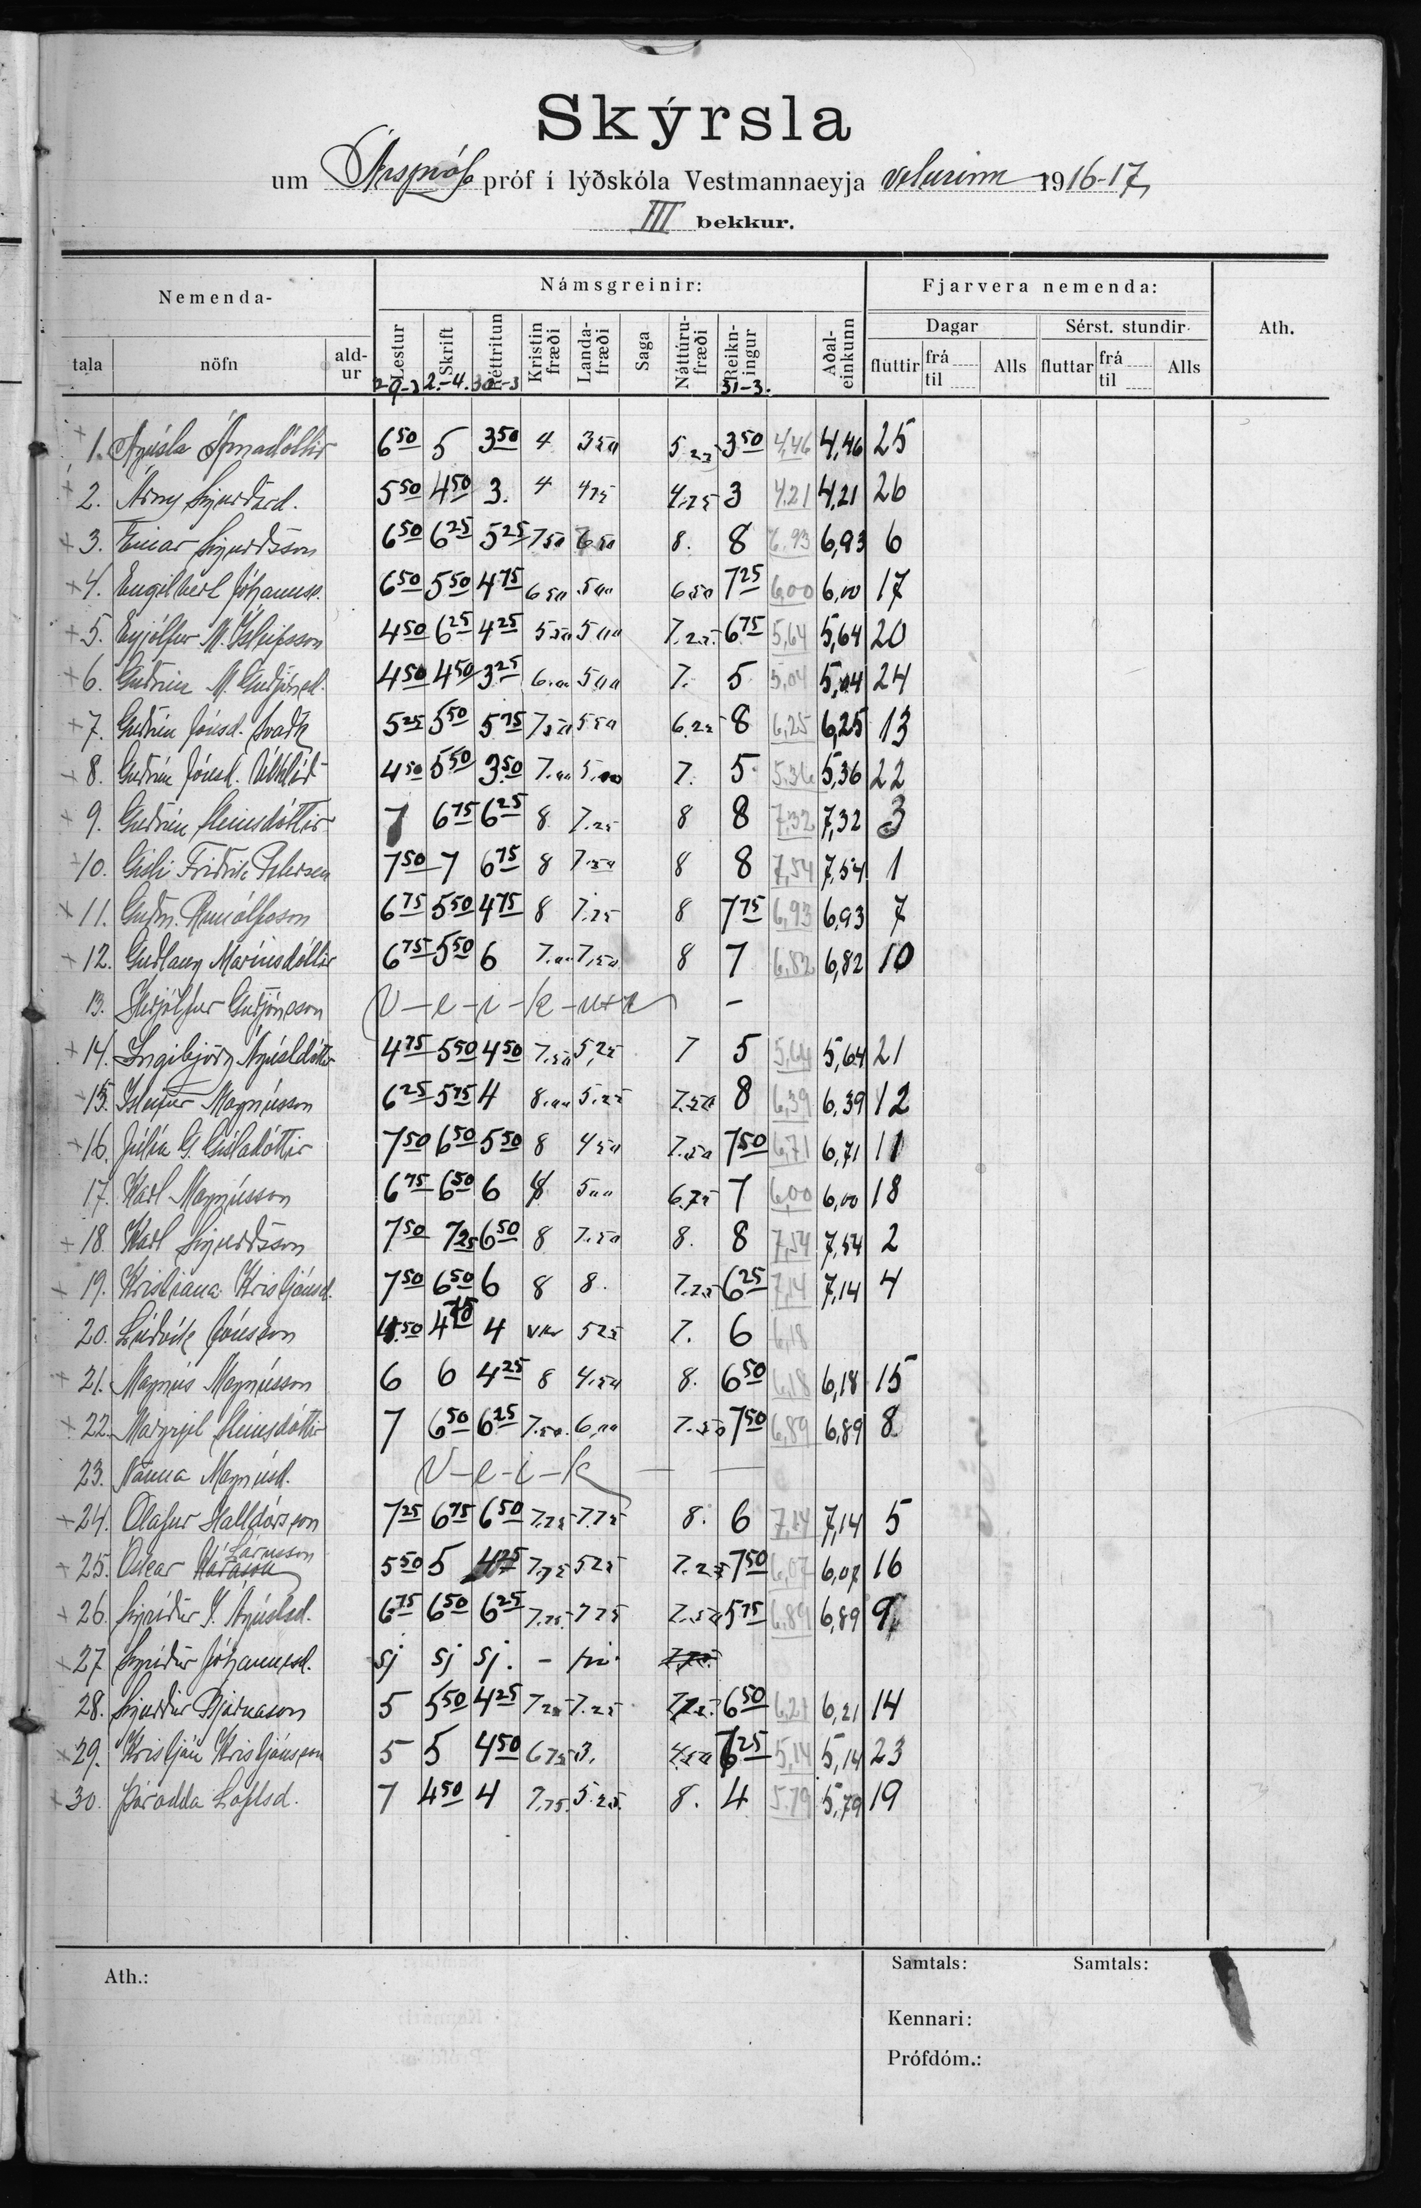 Skýrsla
um Ársprófs próf í lýðskóla Vestmannaeyja veturinn 1916-17,
III bekkur.
Nemenda- Námsgreinir: Fjarvera nemenda: Ath.
Dagar Sérst. stundir
tala nöfn ald-ur Lestur Skrift Réttritun Kristin fræði Landa-fræði Saga Náttúru-fræði Reikn-ingur Aðal-einkunn fluttir frá til Alls fluttar frá til Alls
29-3 2.-4. 30-3 31-3.
1. Ágústa Árnadóttir 6 50 5 3 50 4 3 50 5 25 3 50 4,46 4,46 25
2. Árný Sigurðard. 5 50 4 50 3. 4 4 75 4.25 3 4,21 4,21 26
3. Einar Sigurðsson 6 50 6 25 5 25 7.50 8. 8 6,93 6,93 6
4. Engilbert Jóhannss. 6 50 5 50 4 75 6 50 5 00 6 50 7 25 6,00 6,00 17
5. Eyjólfur M. Ísleifsson 4 50 6 25 4 25 5 50 5 00 7.25. 6 75 5,64 5,64 20
6. Guðrún M. Guðjónsd. 4 50 4 50 3 25 6.00 5 00 7. 5 5,04 5,04 24
7. Guðrún Jónsd. 5 25 5 50 5 75 7 50 5 50 6.25 8 6,25 6,25 13
8. Guðrún Jónsd. 4 50 5 50 3 50 7.00 5.00 7. 5 5.36 5,36 22
9. Guðrún Steinsdóttir 7 6 75 6 25 8 7.25 8 8 7,32 7,32 3
10. Gísli Friðrik Petersen 7 50 7 6 75 8 7.50 8 8 7,54 7,54 1
11. Guðm. Runólfsson 6 75 5 50 4 75 8 7.75 8 7 75 6,93 6,93 7
12. Guðlaug Maríusdóttir 6 75 5 50 6 7.00 7,50 8 7 6,82 6,82 10
13. Herjólfur Guðjónsson V-e-i-k-u-r -
14. Ingibjörg Ágústdóttir 4 75 5 50 4 50 7.50 5,25 7 5 5,64 5,64 21
15. Ísleifur Magnússon 6 25 5 75 4 8.00 5.25 7.50 8 6,39 6,39 12
16. Júlía G. Gísladóttir 7 50 6 50 5 50 8 4 50 7.50 7 50 6,71 6,71 11
17. Karl Magnússon 6 75 6 50 6 5 00 6.75 7 6,00 6,00 18
18. Karl Sigurðsson 7 50 7 25 6 50 8 7.50 8. 8 7,54 7,54 2
19. Kristiana Kristjánsd. 7 50 6 50 6 8 8. 7.25 6 25 7,14 7,14 4
20. Lúðvík Jónsson 4 50 4 75 4 5 25 7. 6 6,18
21. Magnús Magnússon 6 6 4 25 8 4.50 8. 6 50 6,18 6,18 15
22. Margrjet Steinsdóttir 7 6 50 6 25 7.50. 6,00 7.50 7 50 6,89 6,89 8
23. Nanna Magnúsd. V-e-i-k
24. Ólafur Halldórsson 7 25 6 75 6 50 7.75 7.75 8. 6 7,14 7,14 5
25. Óskar Kárason Lárusson 5 50 5 4 25 7.75 5 25 7.25 7 50 6,07 6,07 16
26. Sigríður J. Ágústsd. 6 75 6 50 6 25 7.75. 7 75 7.50 5 75 6,89 6,89 9
27 Sigríður Jóhannesd. sj sj sj. -
28. Sigurður Bjarnason 5 5 50 4 25 7 25 7.25 6 50 6,21 6,21 14
29. Kristján Kristjánsson 5 5 4 50 6 75 3. 4.50 6 25 5,14 5,14 23
30. Þóradda Loftsd. 7 4 50 4 7.75. 5.25. 8. 4 5.79 5,79 19
Ath.: Samtals: Samtals:
Kennari:
Prófdóm.: